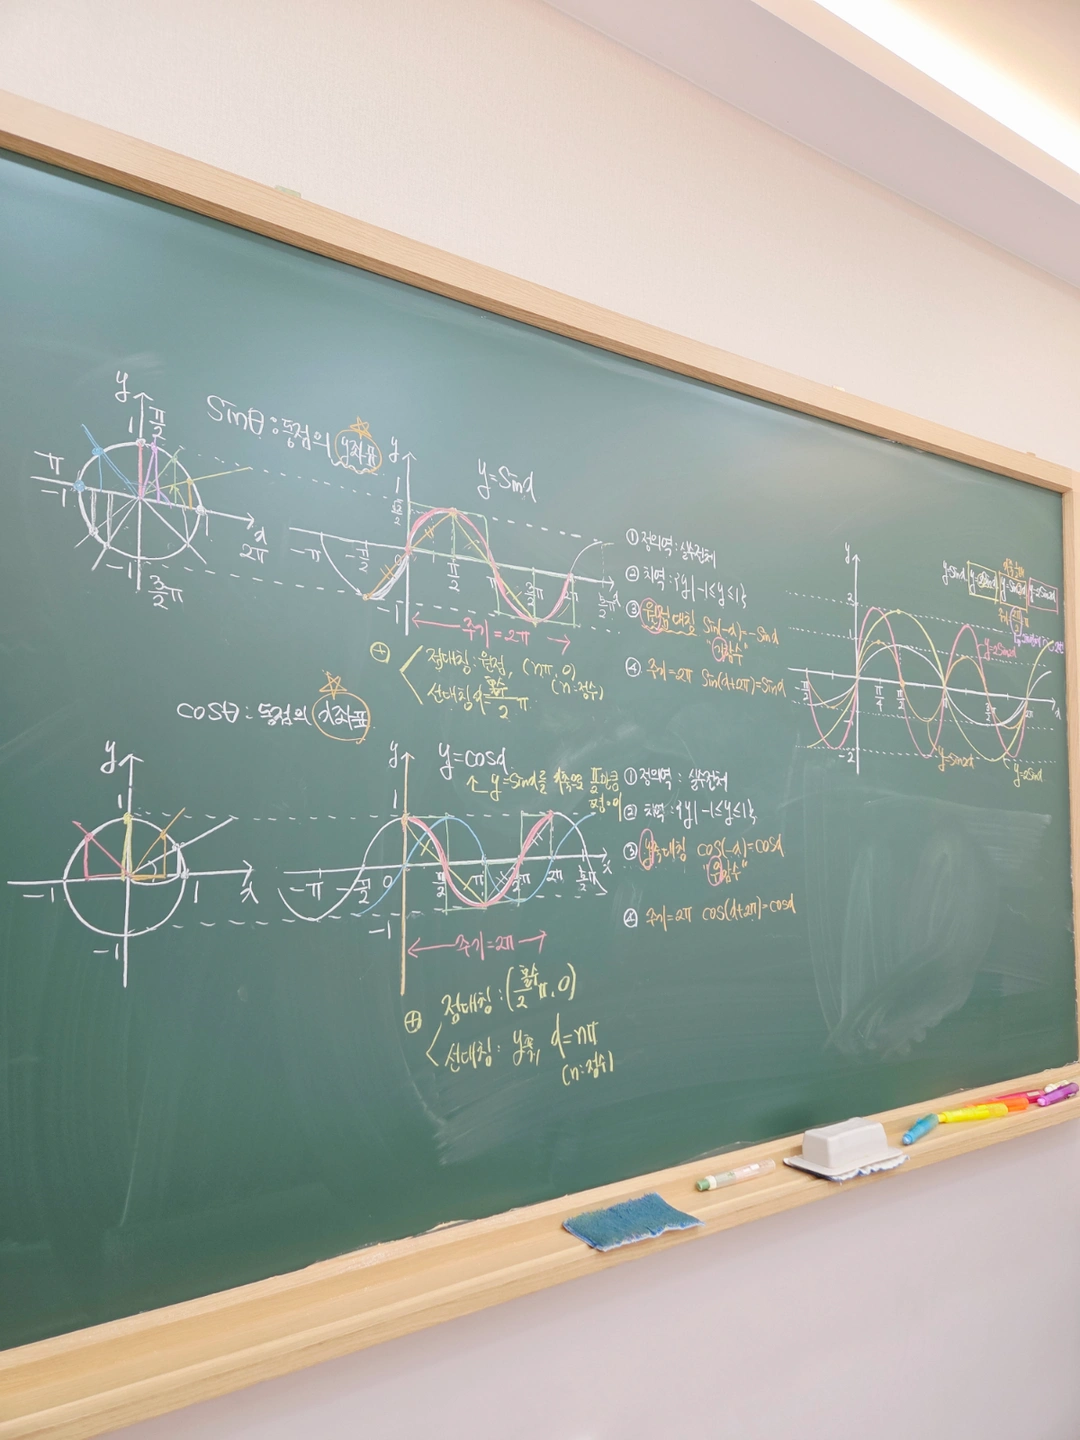 sinθ : 동점의 y좌표
y
1
π/2
π
-1
1
x
2π
-1
3/2π
y
1
√2/2
y=sinx
-π
-π/2
0
π/2
π
3/2π
2π
5/2π
x
-1
주기=2π
⊕ 점대칭 : 원점, (nπ, 0)
선대칭 x=홀수/2 π (n:정수)
① 정의역 : 실수전체
② 치역 : {y|-1≤y≤1}
③ 원점 대칭 sin(-x)=-sinx
"기함수"
④ 주기=2π sin(x+2π)=sinx
cosθ : 동점의 x좌표
y
1
-1
1
x
-1
y
1
y=cosx
y=sinx를 x축으로 π/2만큼
평행이
-π
-π/2
0
π/2
π
3/2π
2π
5/2π
x
-1
주기=2π
⊕ 점대칭 : (홀수/2 π, 0)
선대칭 : y축, x=nπ
(n:정수)
① 정의역 : 실수전체
② 치역 : {y|-1≤y≤1}
③ y축대칭 cos(-x)=cosx
"우함수"
④ 주기=2π cos(x+2π)=cosx
y
y=sinx y=2sinx y=sin2x y=2sin2x
2
1
y=2sin2x
-π/2
π/4
π/2
π
3/2π
2π
x
-1
-2
y=sin2x
y=2sinx